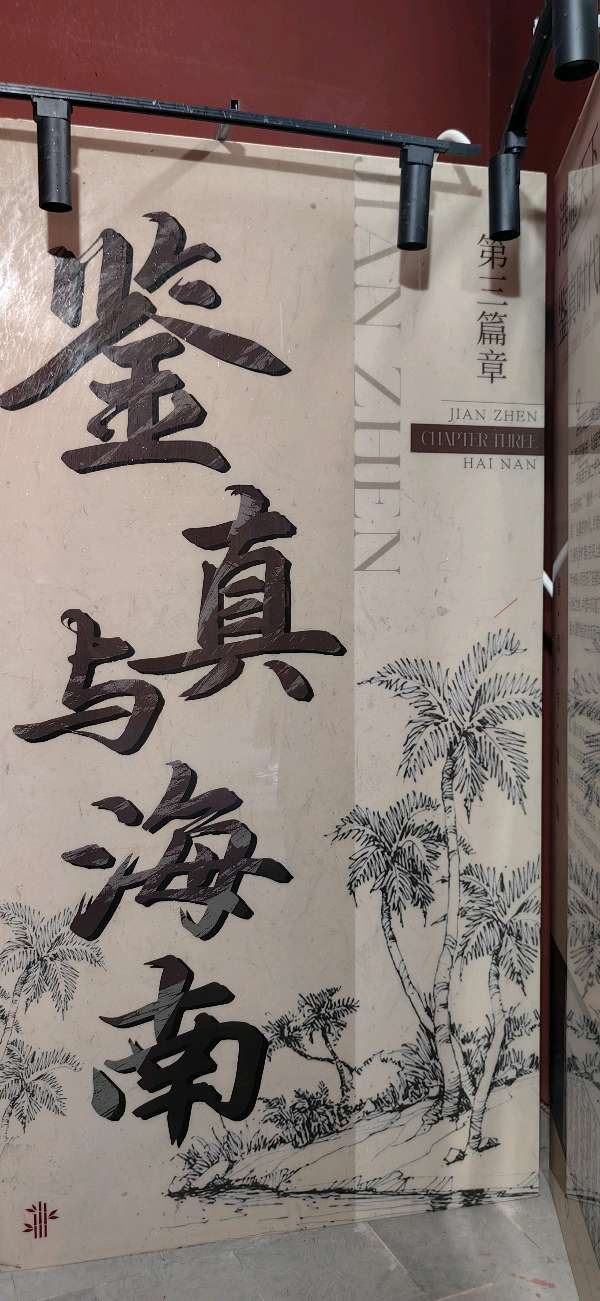 鉴真与海南
JIAN ZHEN
第三篇章
JIAN ZHEN
CHAPTER THREE
HAI NAN